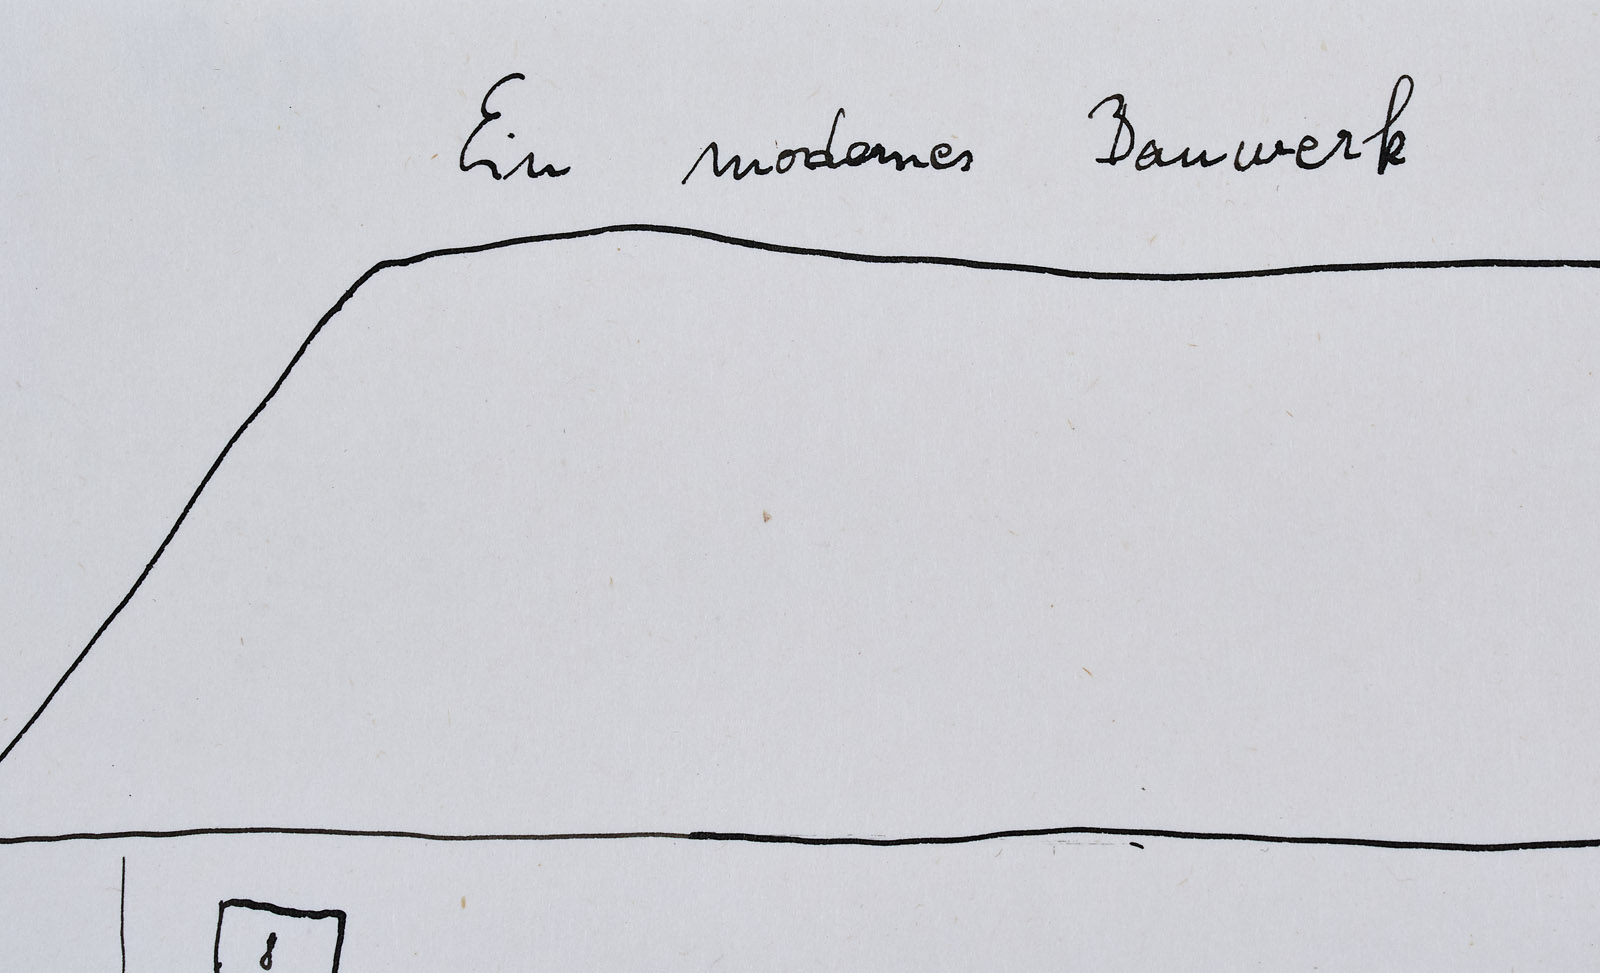 Ein modernes Bauwerk
8